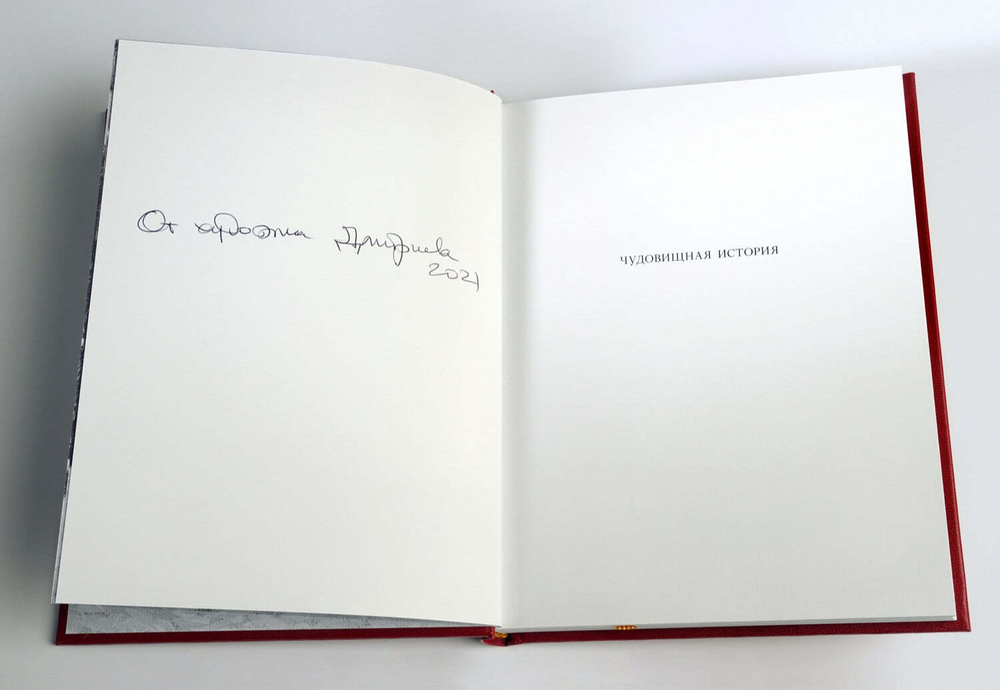 От художника Дмитриева
2021
ЧУДОВИЩНАЯ ИСТОРИЯ